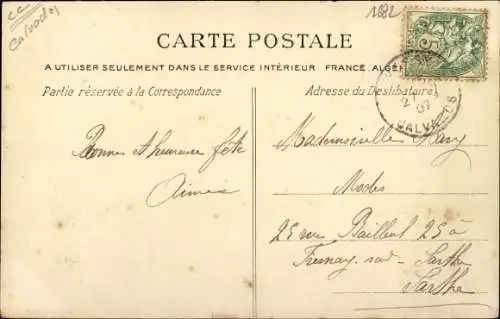 CC
Calvados
1882
CARTE POSTALE
A UTILISER SEULEMENT DANS LE SERVICE INTÉRIEUR FRANCE, ALGÉ
Partie réservée à la Correspondance
Adresse du Destinataire
5
07
CALVADOS
Bonne et heureuse fête
Aimée
Mademoiselle
Modes
25 rue Bailleul 25 à
Fresnay-sur-Sarthe
Sarthe